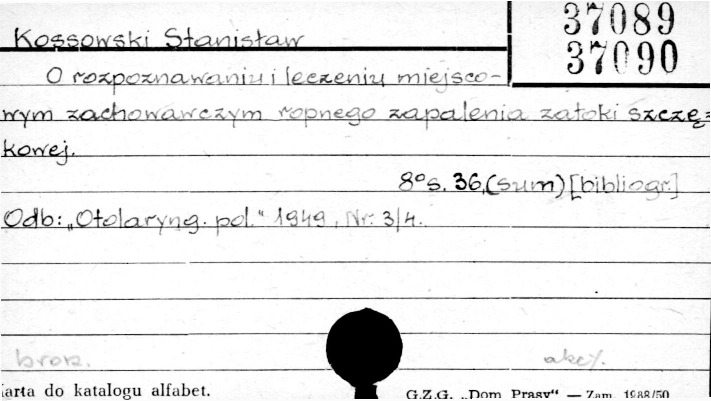 37089
37090
Kossowski Stanisław
O rozpoznawaniu i leczeniu miejsco-
wym zachowawczym ropnego zapalenia zatoki szczę-
kowej.
8° s. 36, (sum) [bibliogr.]
Odb: „Otolaryng. pol." 1949, Nr. 3/4.
brosz. akc/.
arta do katalogu alfabet. G.Z.G. „Dom Prasy" — Zam. 1988/50